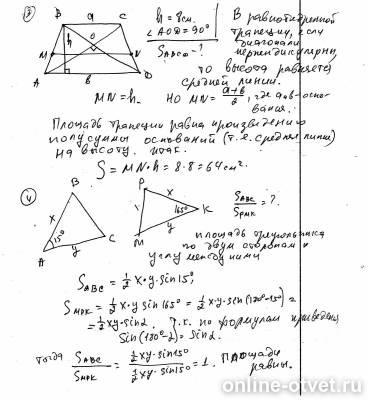 3
B a C
h
O
M N
A b D
h = 8 см.
∠AOD = 90°
S ABCD - ?
В равнотрапеции, если
диагонали
перпендикулярны,
то высота равняется
средней линии.
MN = h. но MN = a+b/2, где a и b - осно-
вания.
Площадь трапеции равна произведению
полусуммы оснований (т.е. средняя линия)
на высоту. итак.
S = MN·h = 8·8 = 64 см².
4
B
x
15°
A y C
P x
165° K
M y
S ABC / S MPK = ?
площадь треугольника
по двум сторонам и
углу между ними
S ABC = 1/2 x·y sin 15°;
S MPK = 1/2 x·y sin 165° = 1/2 x·y·sin(180°-15) =
= 1/2 xy·sin α. т.к. по формулам приведения
sin(180°-α) = sin α.
тогда S ABC / S MPK = 1/2 xy·sin 15° / 1/2 xy·sin 15° = 1. Площади
равны.
online-otvet.ru